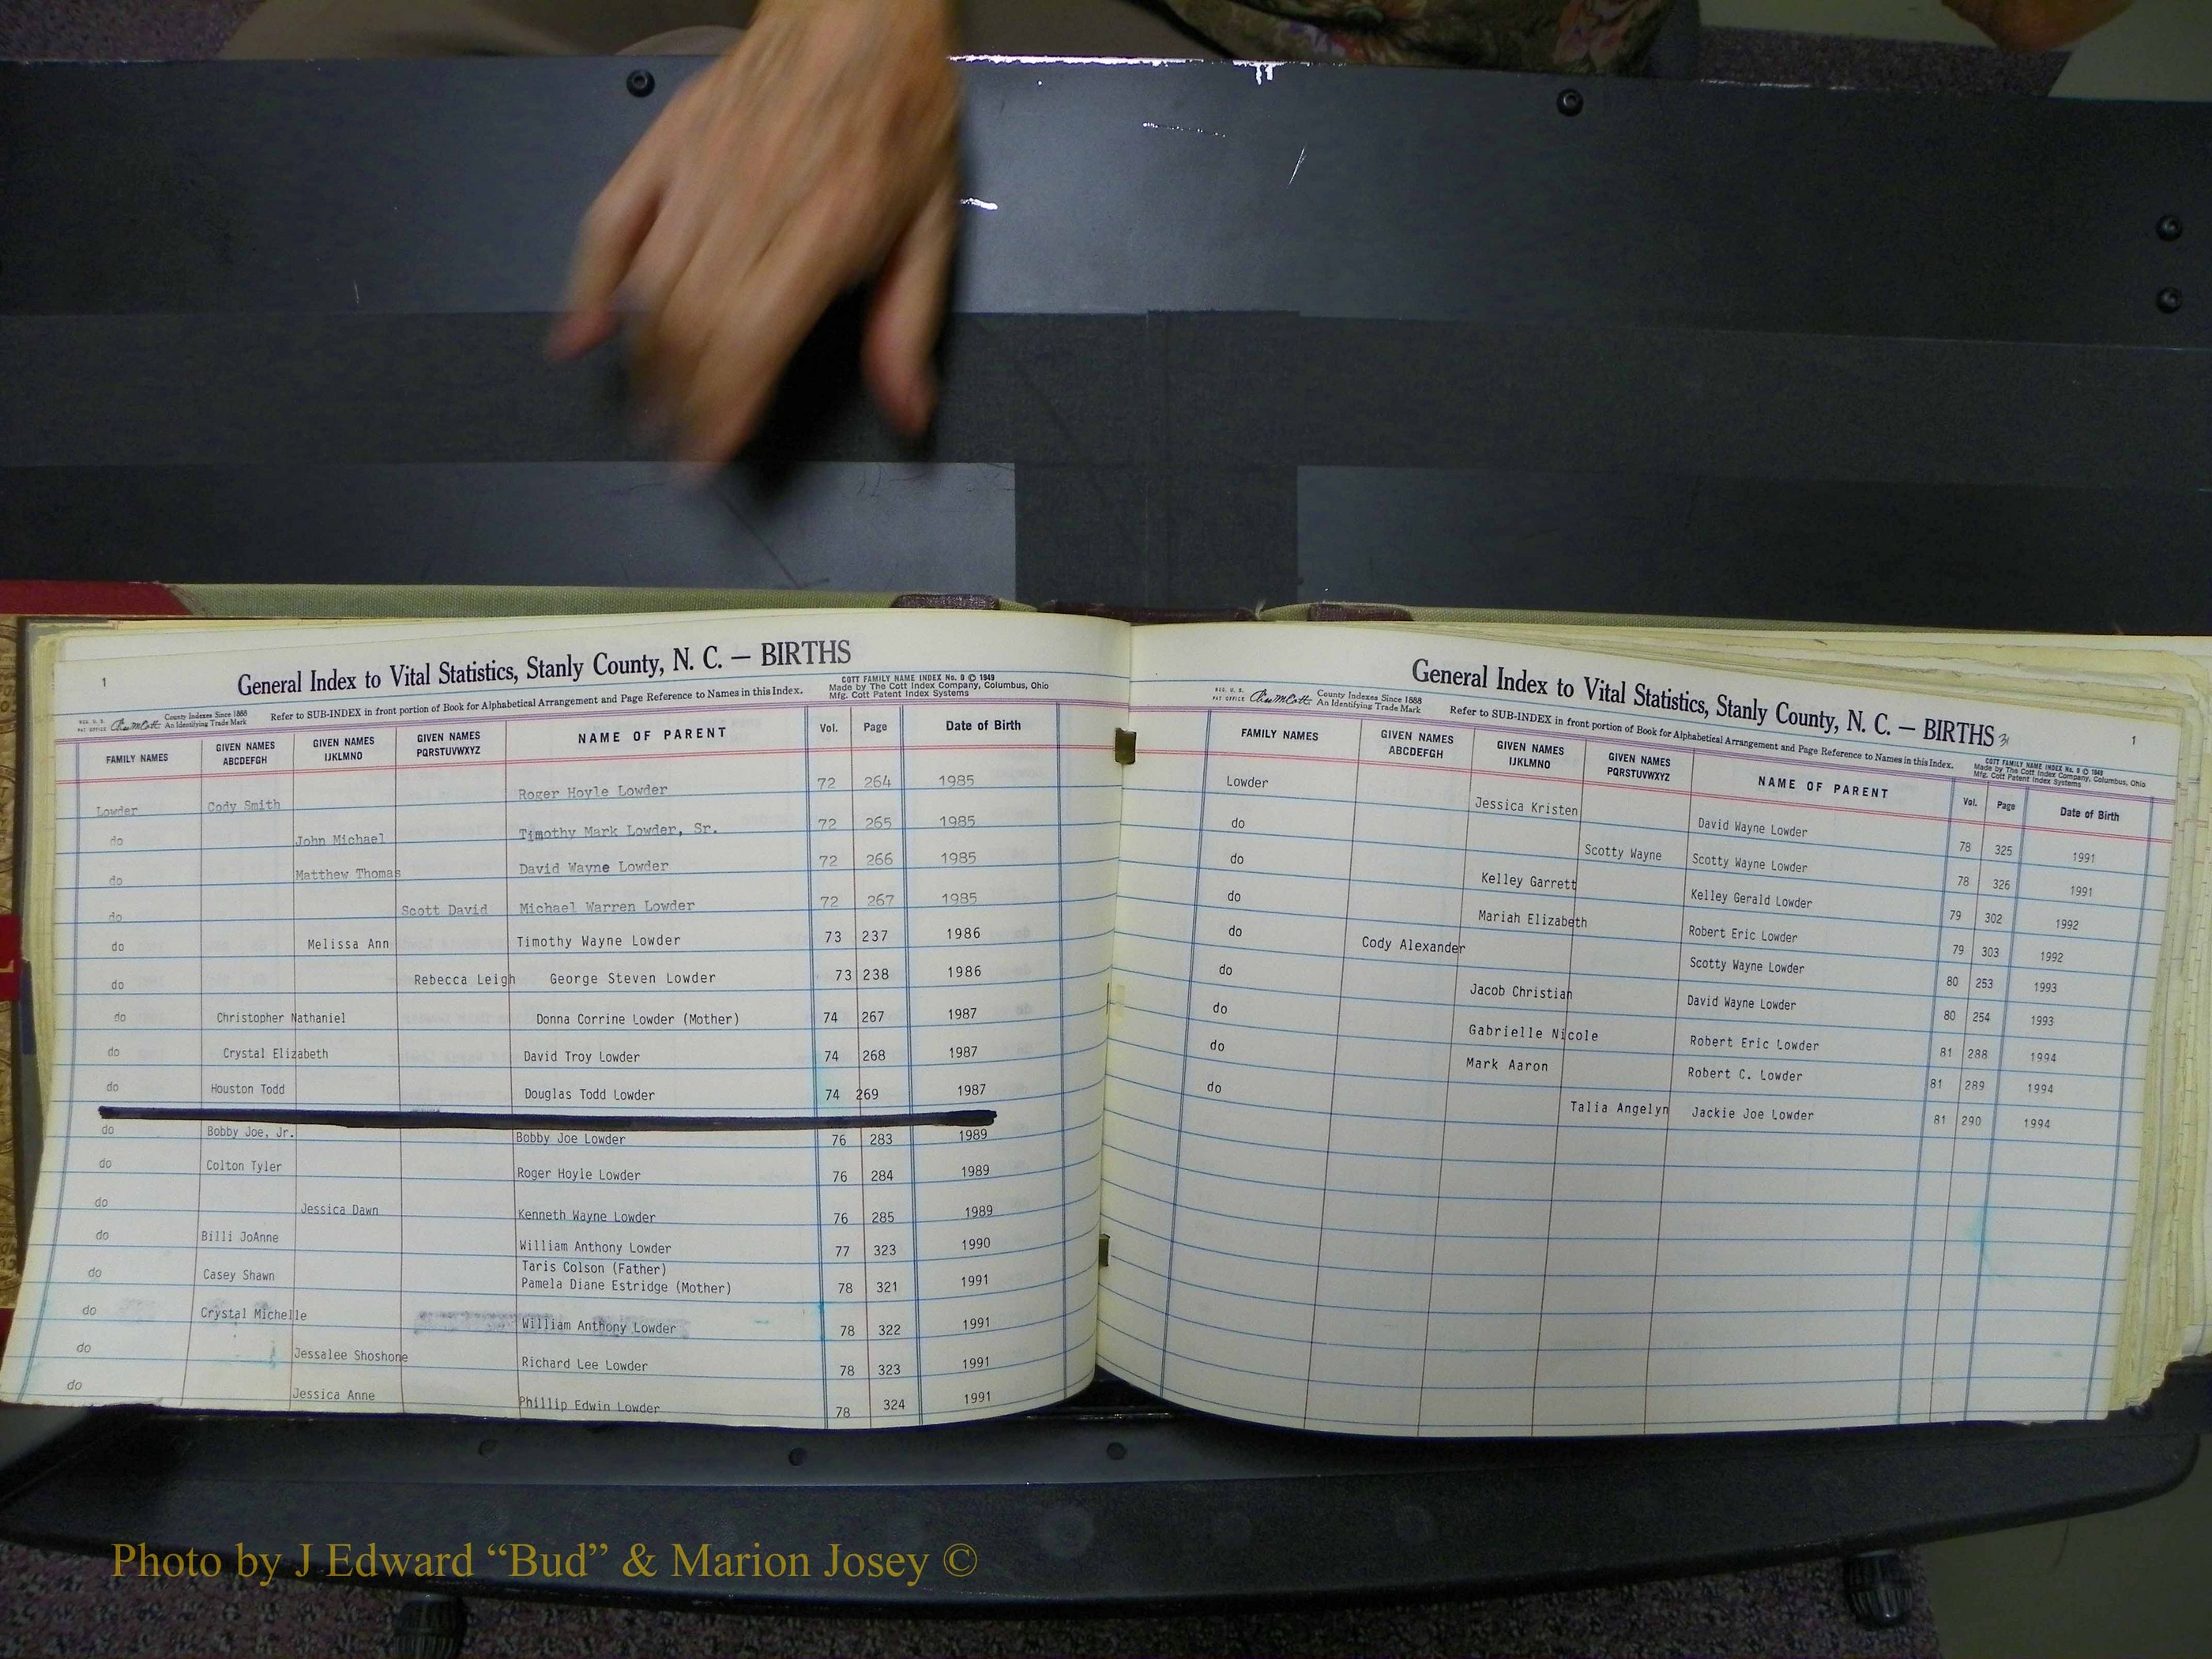 1
General Index to Vital Statistics, Stanly County, N. C. — BIRTHS
COTT FAMILY NAME INDEX No. 0 © 1949
Made by The Cott Index Company, Columbus, Ohio
Mfg. Cott Patent Index Systems
REG. U. S. PAT OFFICE
County Indexes Since 1888
An Identifying Trade Mark
Refer to SUB-INDEX in front portion of Book for Alphabetical Arrangement and Page Reference to Names in this Index.
FAMILY NAMES GIVEN NAMES ABCDEFGH GIVEN NAMES IJKLMNO GIVEN NAMES PQRSTUVWXYZ NAME OF PARENT Vol. Page Date of Birth
Lowder Cody Smith Roger Hoyle Lowder 72 264 1985
do John Michael Timothy Mark Lowder, Sr. 72 265 1985
do Matthew Thomas David Wayne Lowder 72 266 1985
do Scott David Michael Warren Lowder 72 267 1985
do Melissa Ann Timothy Wayne Lowder 73 237 1986
do Rebecca Leigh George Steven Lowder 73 238 1986
do Christopher Nathaniel Donna Corrine Lowder (Mother) 74 267 1987
do Crystal Elizabeth David Troy Lowder 74 268 1987
do Houston Todd Douglas Todd Lowder 74 269 1987
do Bobby Joe, Jr. Bobby Joe Lowder 76 283 1989
do Colton Tyler Roger Hoyle Lowder 76 284 1989
do Jessica Dawn Kenneth Wayne Lowder 76 285 1989
do Billi JoAnne William Anthony Lowder 77 323 1990
Taris Colson (Father)
do Casey Shawn Pamela Diane Estridge (Mother) 78 321 1991
do Crystal Michelle William Anthony Lowder 78 322 1991
do Jessalee Shoshone Richard Lee Lowder 78 323 1991
do Jessica Anne Phillip Edwin Lowder 78 324 1991
General Index to Vital Statistics, Stanly County, N. C. — BIRTHS 31
1
REG. U. S. PAT OFFICE
County Indexes Since 1888
An Identifying Trade Mark
Refer to SUB-INDEX in front portion of Book for Alphabetical Arrangement and Page Reference to Names in this Index.
COTT FAMILY NAME INDEX No. 0 © 1949
Made by The Cott Index Company, Columbus, Ohio
Mfg. Cott Patent Index Systems
FAMILY NAMES GIVEN NAMES ABCDEFGH GIVEN NAMES IJKLMNO GIVEN NAMES PQRSTUVWXYZ NAME OF PARENT Vol. Page Date of Birth
Lowder Jessica Kristen David Wayne Lowder 78 325 1991
do Scotty Wayne Scotty Wayne Lowder 78 326 1991
do Kelley Garrett Kelley Gerald Lowder 79 302 1992
do Mariah Elizabeth Robert Eric Lowder 79 303 1992
do Cody Alexander Scotty Wayne Lowder 80 253 1993
do Jacob Christian David Wayne Lowder 80 254 1993
do Gabrielle Nicole Robert Eric Lowder 81 288 1994
do Mark Aaron Robert C. Lowder 81 289 1994
do Talia Angelyn Jackie Joe Lowder 81 290 1994
Photo by J Edward “Bud” & Marion Josey ©